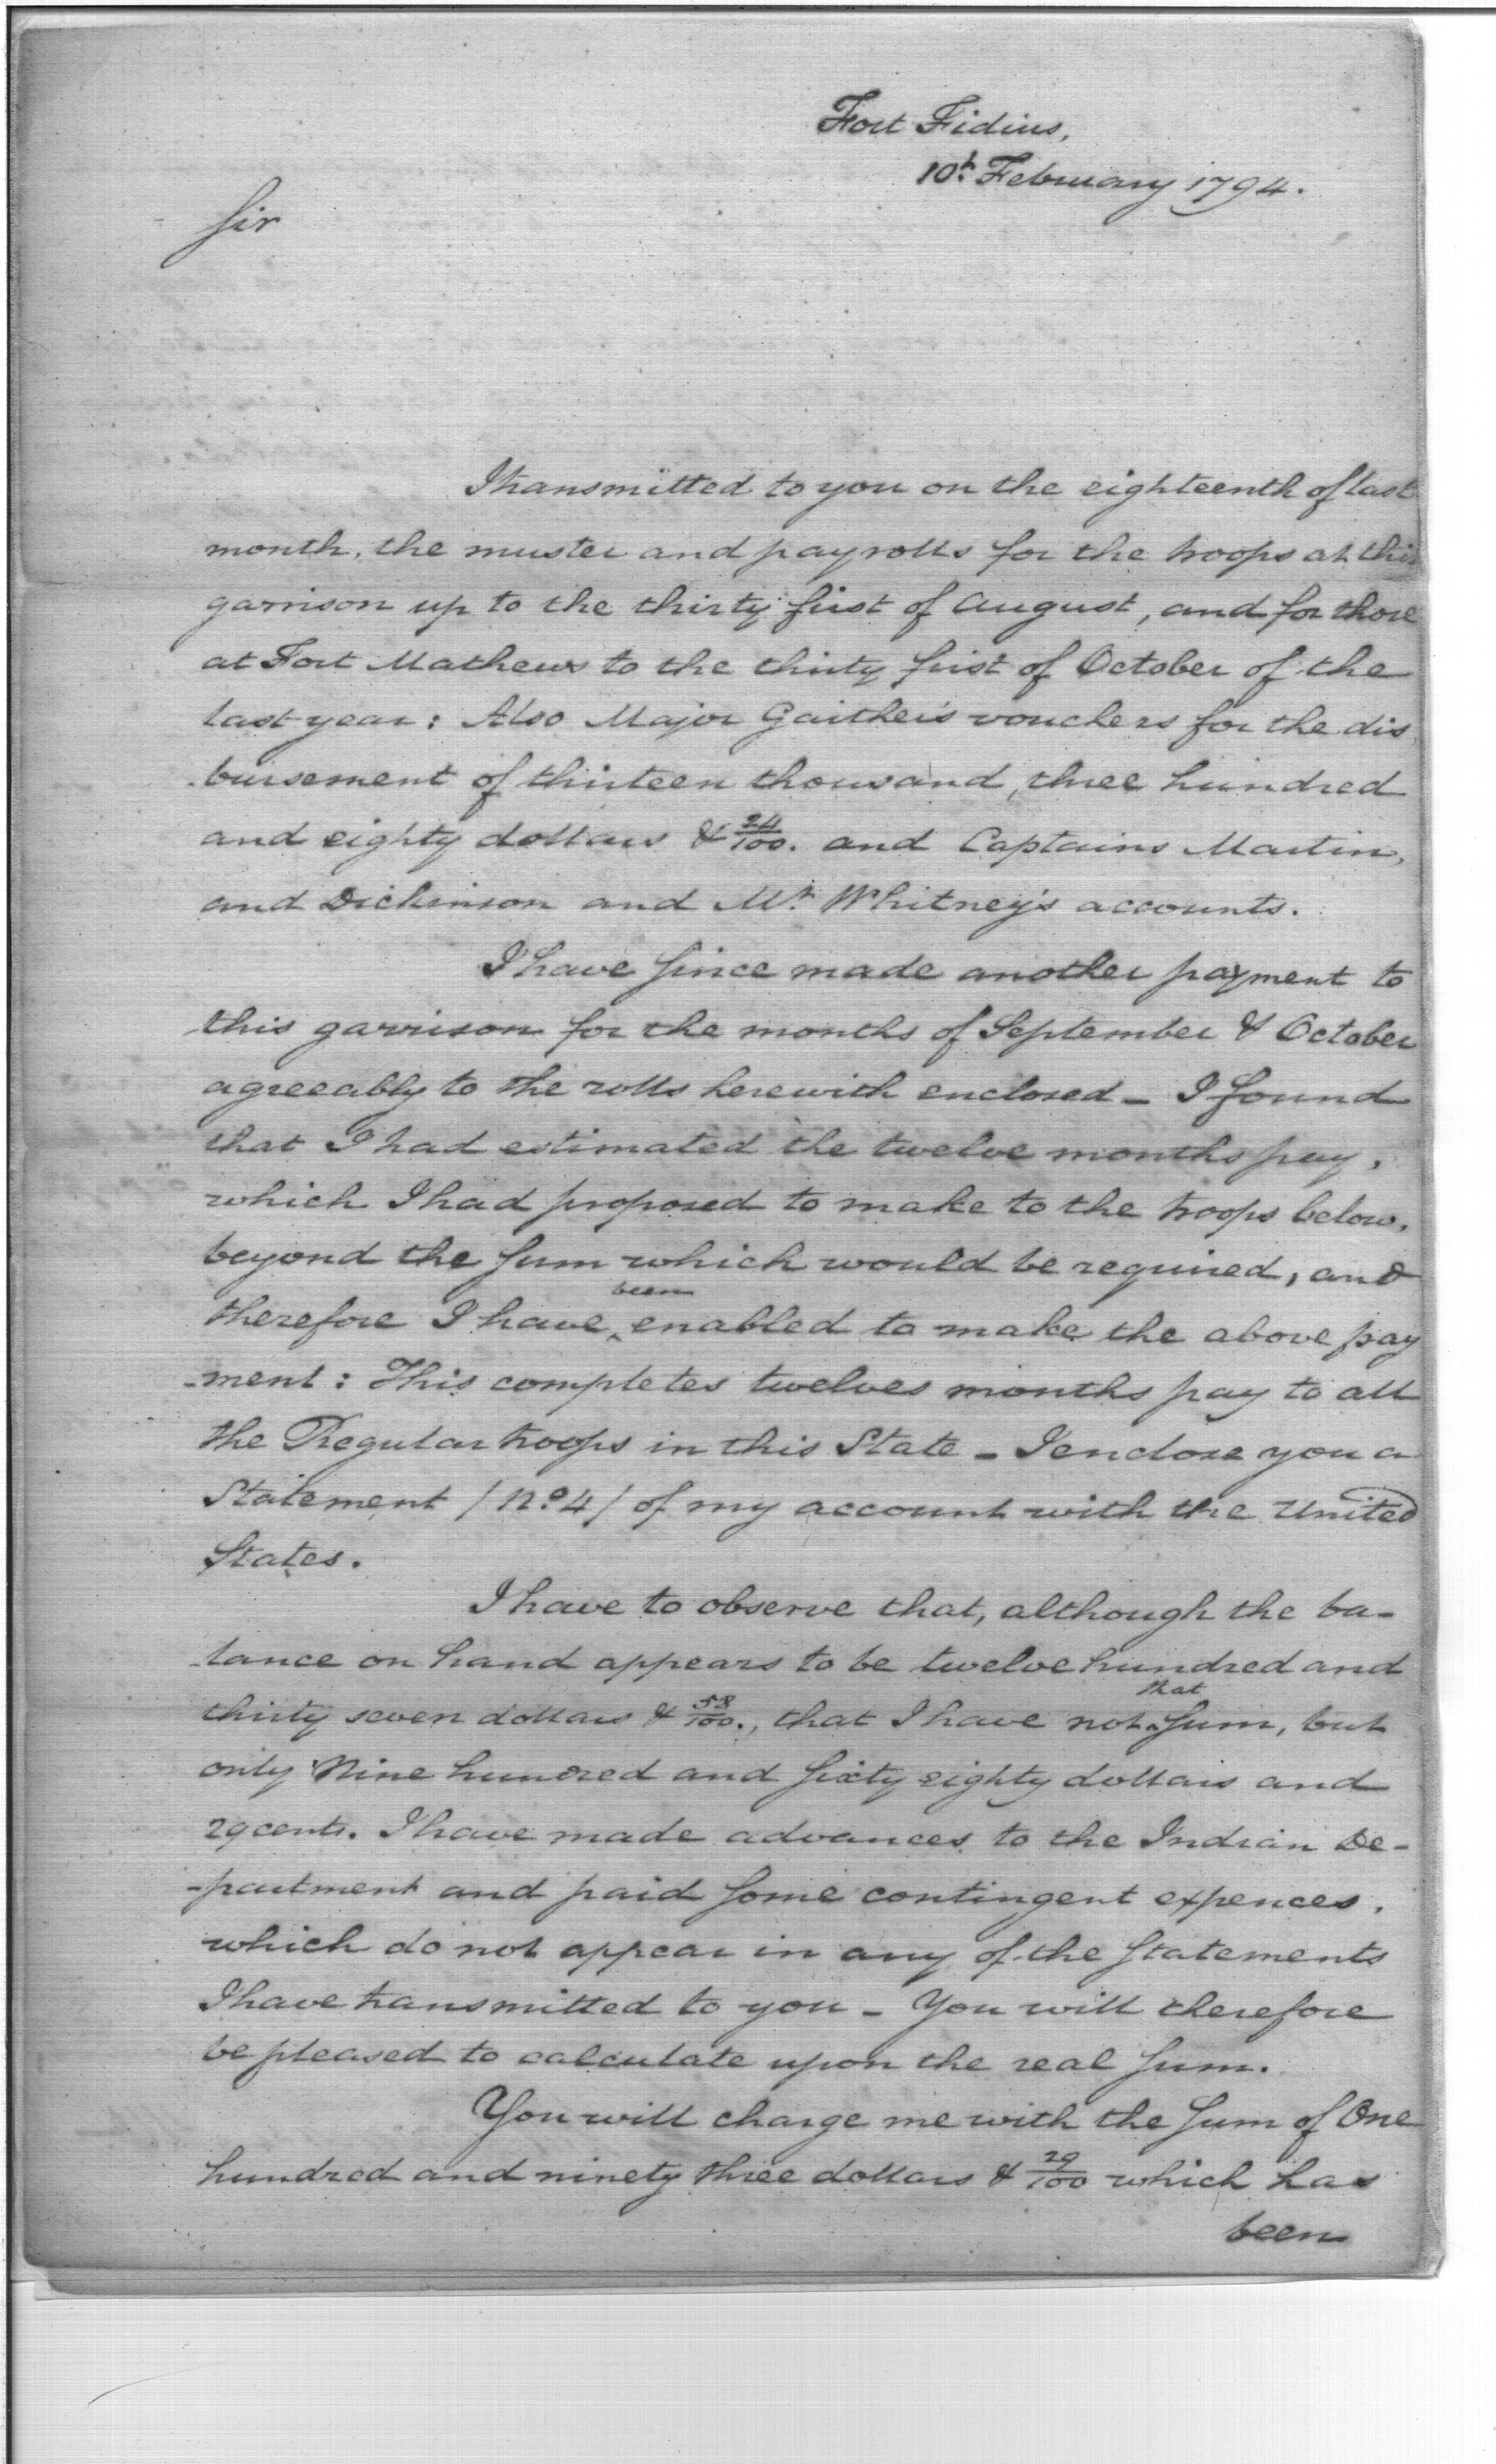 Fort Fidius,
10th February 1794.
Sir
I transmitted to you on the eighteenth of last
month, the muster and payrolls for the troops at this
garrison up to the thirty first of August, and for those
at Fort Mathews to the thirty first of October of the
last year: Also Major Gaither's vouchers for the dis
-bursement of thirteen thousand, three hundred
and eighty dollars & 24/100. and Captains Martin,
and Dickinson and Mr. Whitney's accounts.
I have since made another payment to
this garrison for the months of September & October
agreeably to the rolls herewith enclosed – I found
that I had estimated the twelve months pay,
which I had proposed to make to the troops below,
beyond the sum which would be required, and
been
therefore I have ‸ enabled to make the above pay
-ment: This completes twelves months pay to all
the Regular troops in this State – I enclose you a
Statement / No. 4 / of my account with the United
States.
I have to observe that, although the ba-
-lance on hand appears to be twelve hundred and
that
thirty seven dollars & 58/100., that I have not ‸ sum, but
only Nine hundred and sixty eighty dollars and
29 cents. I have made advances to the Indian De-
-partment and paid some contingent expences,
which do not appear in any of the statements
I have transmitted to you – You will therefore
be pleased to calculate upon the real sum.
You will charge me with the sum of One
hundred and ninety three dollars & 29/100 which has
been